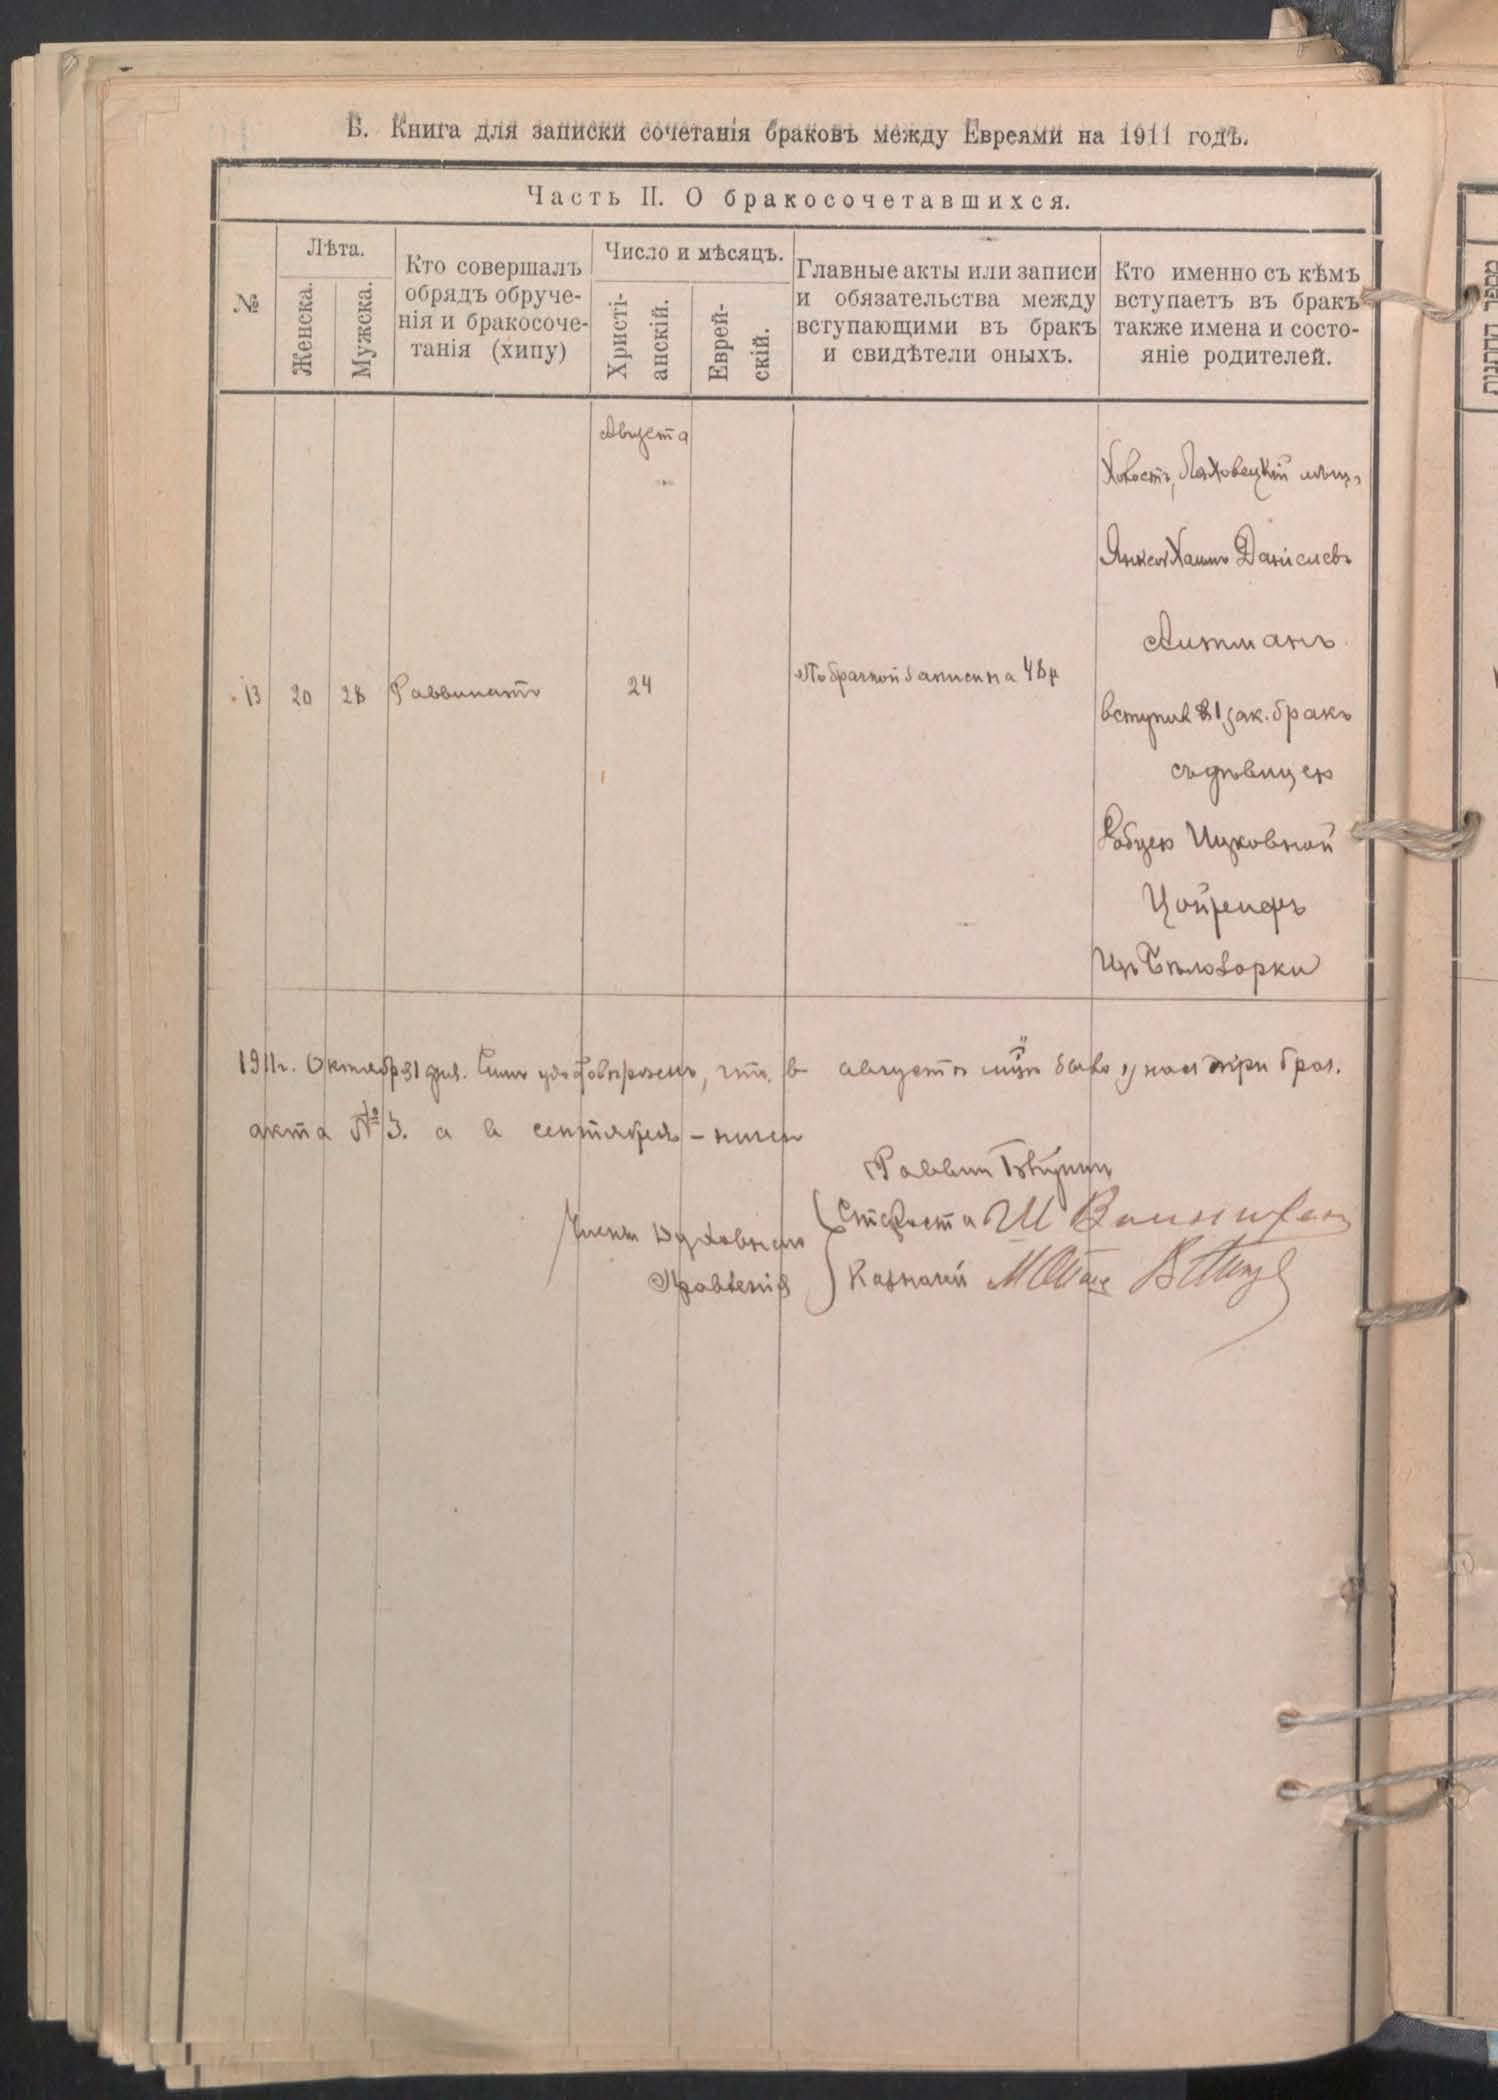 Б. Книга для записки сочетанія браковъ между Евреями на 1911 годъ.
Часть II. О бракосочетавшихся.
№
Лѣта.
Женска.
Мужска.
Кто совершалъ
обрядъ обруче-
нія и бракосоче-
танія (хипу)
Число и мѣсяцъ.
Христі-
анскій.
Еврей-
скій.
Главные акты или записи
и обязательства между
вступающими въ бракъ
и свидѣтели оныхъ.
Кто именно съ къмъ
вступаетъ въ бракъ
также имена и состо-
яніе родителей.
Августа
13
20
28
Раввинатъ
24
По брачной записи на 48 р
Холостъ, Ляховецкій мѣщ.
Янкель Хаимъ Даніелевъ
Литманъ
вступил в 1 зак. бракъ
съ дѣвицею
Ицковной
Цойрейфъ
Изъ Бѣлозорки
1911г. Октября 31 дня. Симъ удостовѣряемъ, что в августѣ было у нас три брач.
акта № 3. а в сентябрѣ - ничего
Раввин
Члены Духовнаго
Правленія
Староста Ш
Казначей М
מספר החתנות